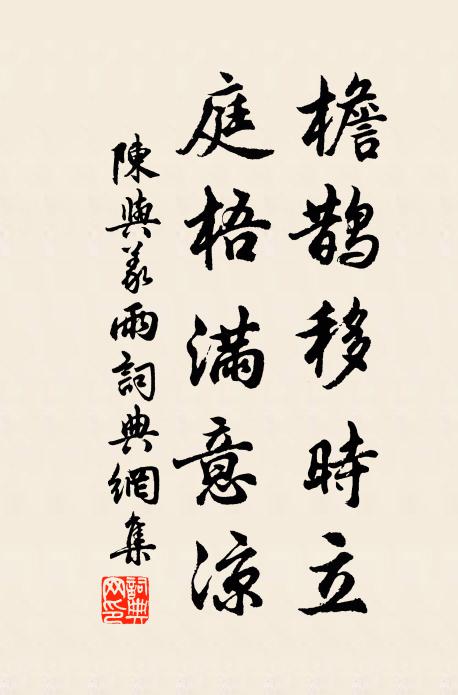 檐鵲移時立
庭梧滿意涼
陳與義雨詞典網集
詞典網印